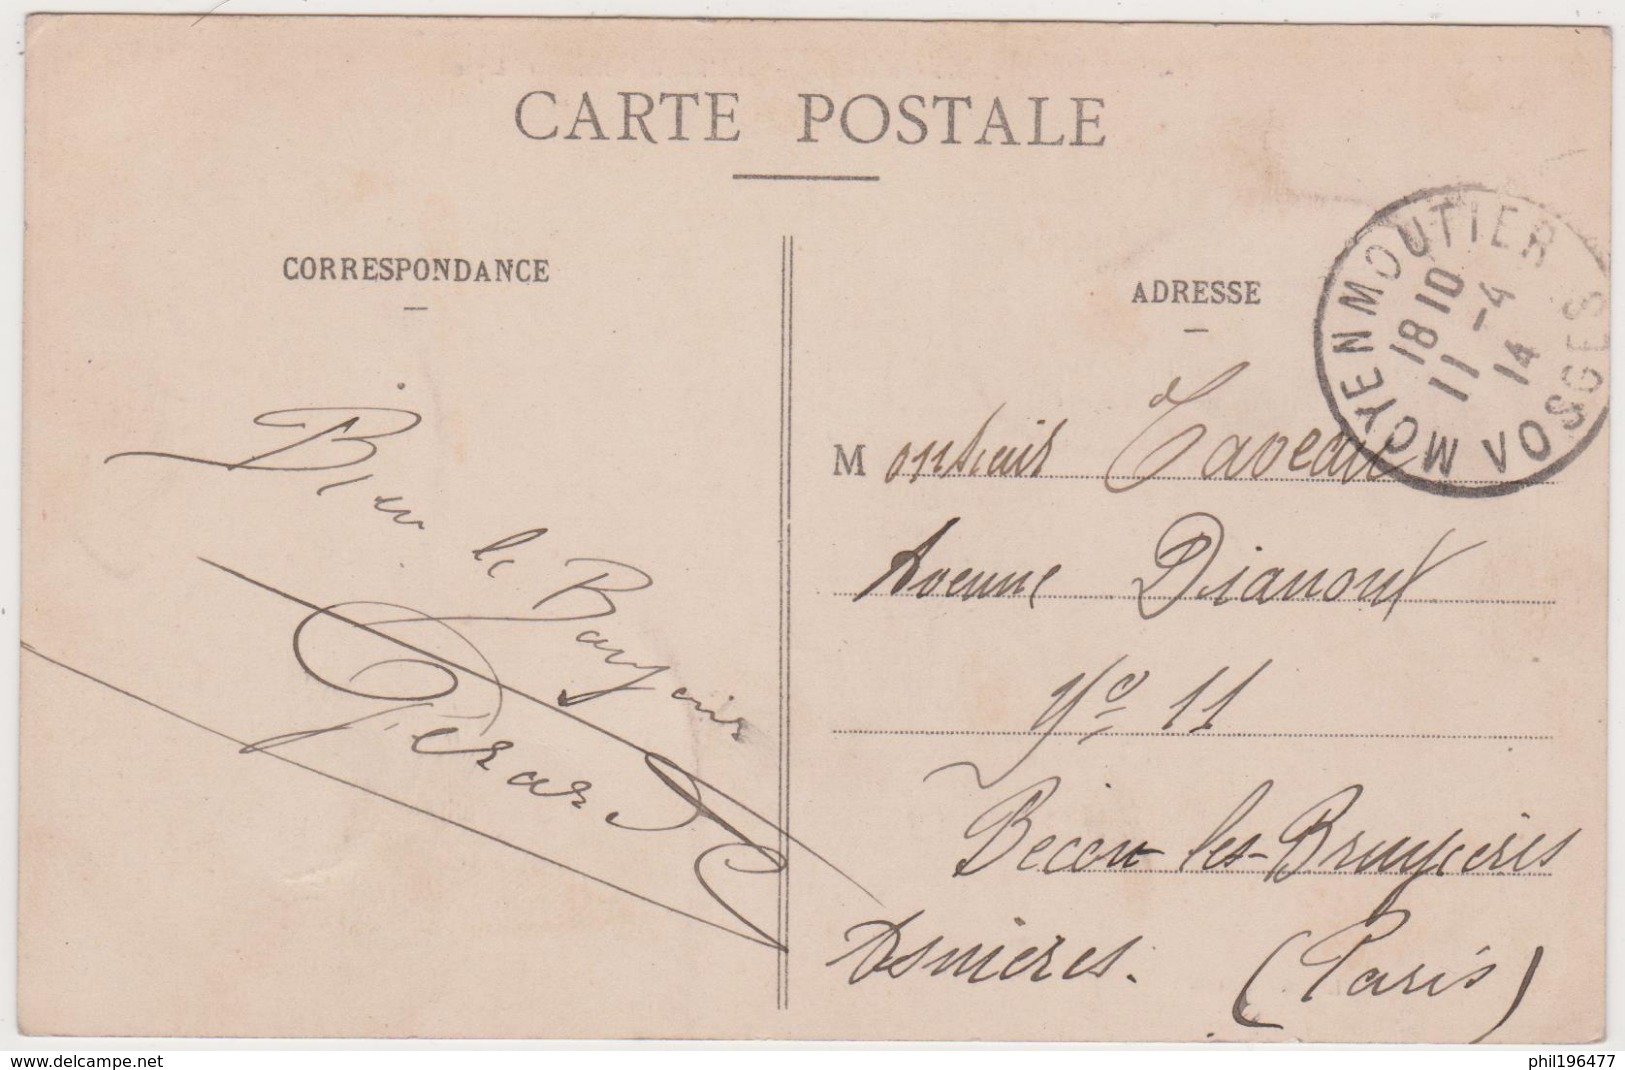 CARTE POSTALE
CORRESPONDANCE
ADRESSE
MOYENMOUTIER
18 10
11 -4
14
VOSGES
Bien le Bonjour
Gerard
Monsieur Taveau
Avenue Dianoux
No 11
Becon les-Bruyeres
Asnieres. (Paris)
www.delcampe.net
phil196477